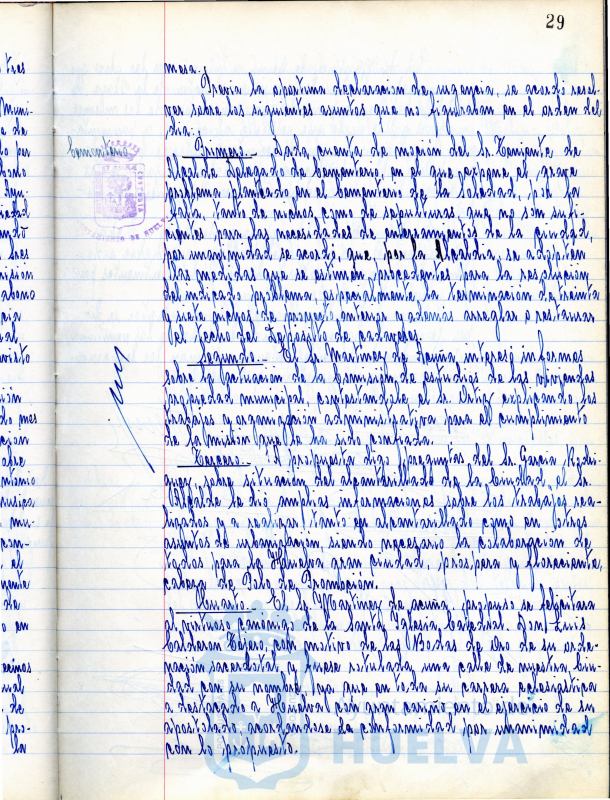 29
mesa.-
Previa la oportuna declaracion de urgencia, se acordó resol-
ver sobre los siguientes asuntos que no figuraban en el orden del
dia:
Cementerio
Primero.- Dada cuenta de moción del Sr. Teniente de
Alcalde Delegado de Cementerio, en el que expone el grave
problema planteado en el Cementerio de la Soledad, por la
falta, tanto de nichos como de sepulturas que no son sufi-
cientes para las necesidades de enterramientos de la ciudad,
por unanimidad se acordó, que, por la Alcaldia, se adopten
las medidas que se estimen procedentes para la resolucion
del indicado problema, especialmente la terminacion de treinta
y siete nichos de proyecto anterior y además arreglar o restaurar
el techo del Depósito de cadaveres.
Segundo.- El Sr. Martinez de Acuña, interesó informes
sobre la actuación de la Comisión de estudios de las viviendas
propiedad municipal, contestandole el Sr. Ortiz explicando los
trabajos y organización administrativa para el cumplimiento
de la misión que le ha sido confiada.
Tercero.- A propuesta digo preguntas del Sr. Garcia Rodri-
guez, sobre situación del alcantarillado de la Ciudad, el Sr.
Alcalde le dió amplias informaciones sobre los trabajos rea-
lizados y a realizar, tanto en alcantarillado como en otros
asuntos de urbanización, siendo necesario la colaboración de
todos para la Huelva gran ciudad, próspera y floreciente,
cabeza de Polo de Promoción.
Cuarto.- El Sr. Martinez de acuña, propuso se felicitara
al virtuoso canónigo de la Santa Iglesia Catedral, Don Luis
Calderon Tejero, con motivo de las Bodas de Oro de su orde-
nación sacerdotal, y fuese rotulada una calle de nuestra Ciu-
dad con su nombre, ya que en toda su carrera eclesiástica
a destacado a Huelva con gran cariño en el ejercicio de su
apostolado, acordandose de conformidad, por unanimidad
con lo propuesto.
HUELVA